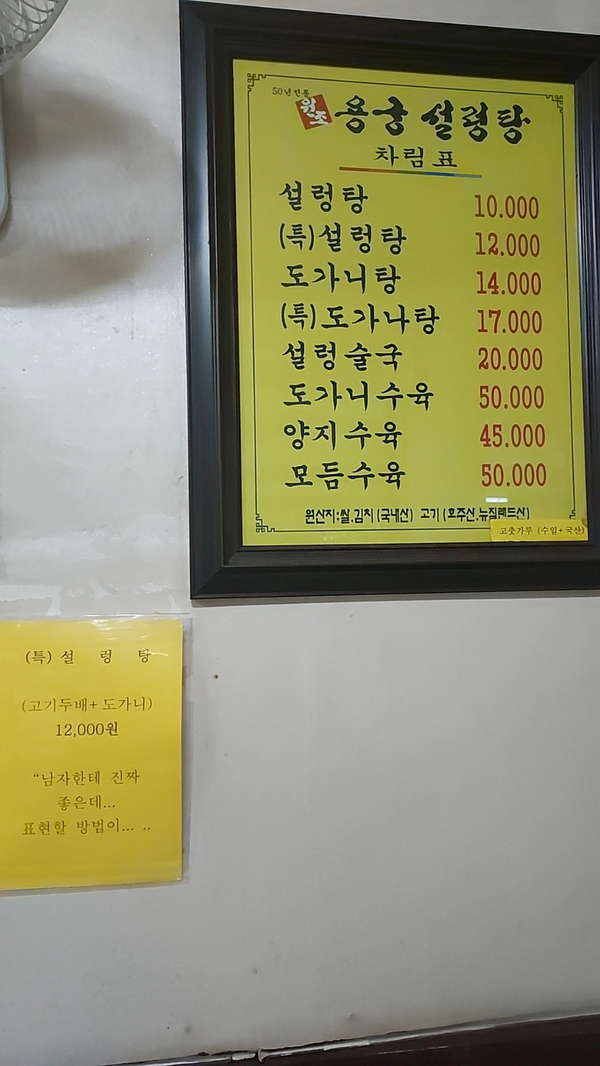 50년전통
원조 용궁 설렁탕
차림표
설렁탕 10.000
(특)설렁탕 12.000
도가니탕 14.000
(특)도가니탕 17.000
설렁술국 20.000
도가니수육 50.000
양지수육 45.000
모듬수육 50.000
원산지:쌀.김치(국내산) 고기(호주산.뉴질랜드산)
고춧가루 (수입+국산)
(특) 설 렁 탕
(고기두배+ 도가니)
12,000원
“남자한테 진짜
좋은데...
표현할 방법이... ..